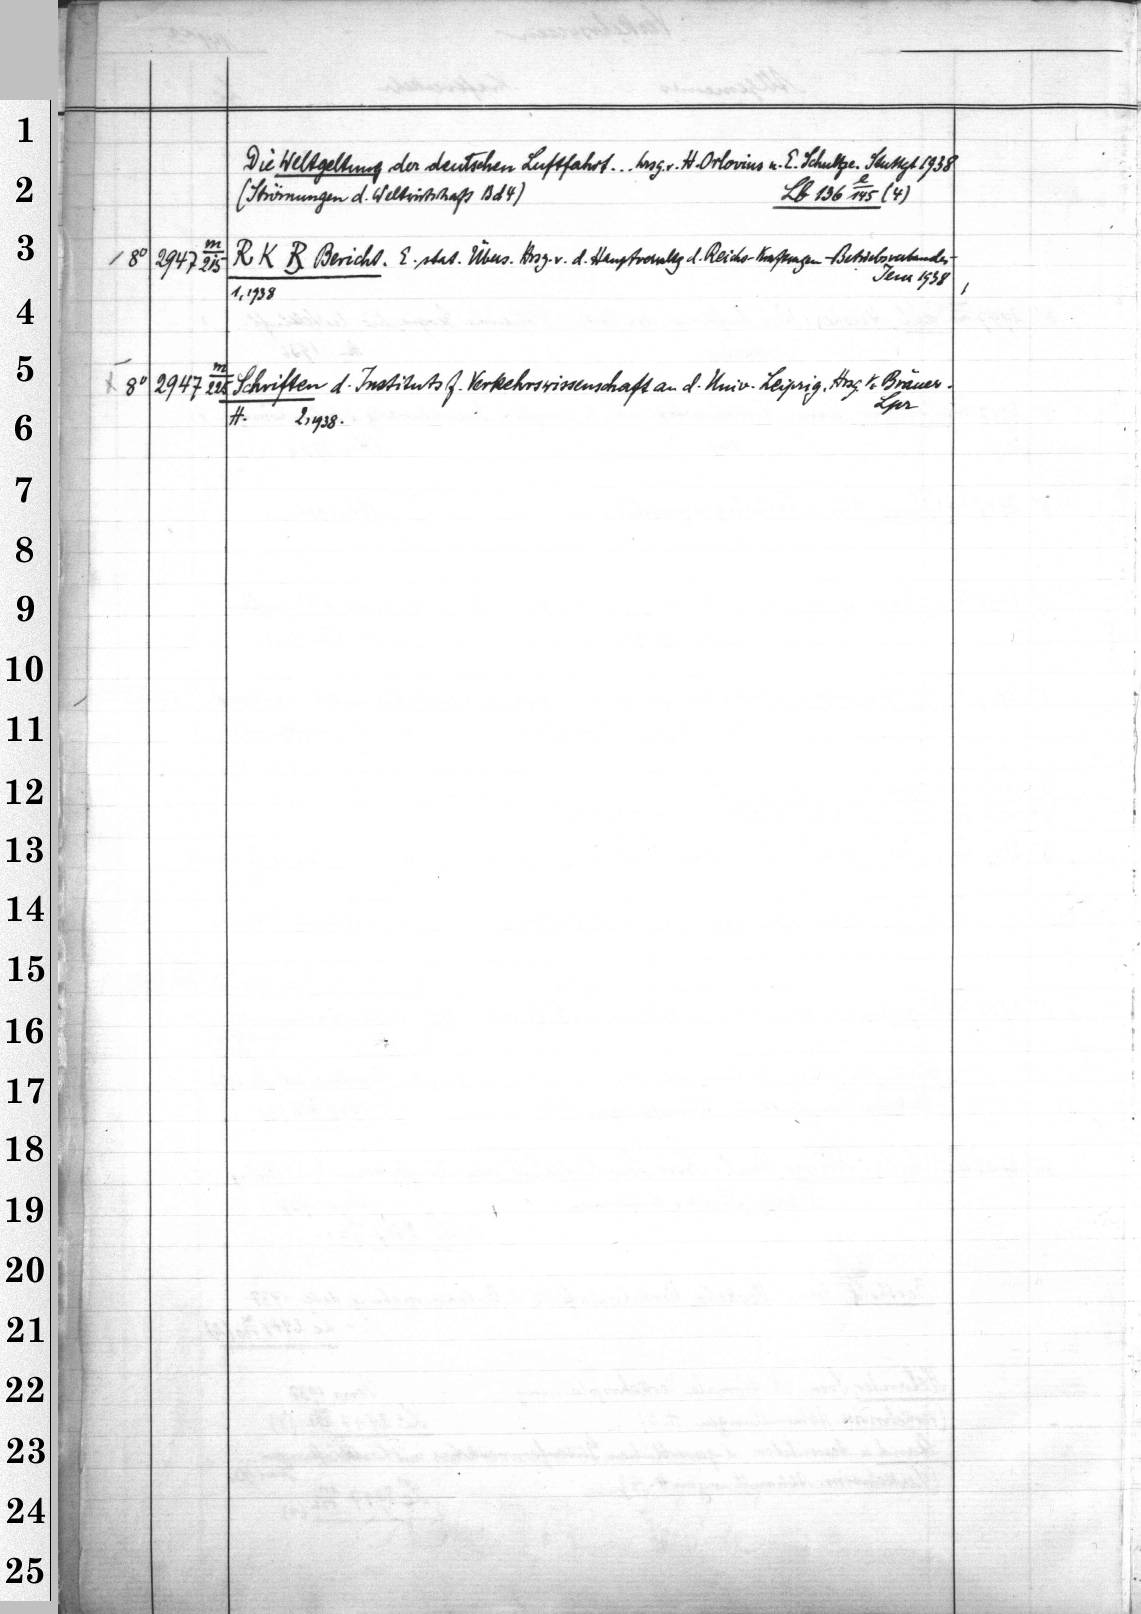 1
Die Weltgeltung der deutschen Luftfahrt... hrsg. v. H. Orlovius u. E. Schultze. Stuttgt 1938
2
(Strömungen d. Weltwirtschaft Bd 4) Lb 136 e/145 (4)
3
/ 8° 2947 m/215 R K B Bericht. E. stat. Übers. Hrsg. v. d. Hauptverwltg d. Reichs-Kraftwagen-Betriebsverbandes
1, 1938 1938
4
5
8° 2947 m/225 Schriften d. Instituts f. Verkehrswissenschaft an d. Univ. Leipzig. Hrsg. v. Bräuer.
Lpz
6
H. 2, 1938.
7
8
9
10
11
12
13
14
15
16
17
18
19
20
21
22
23
24
25